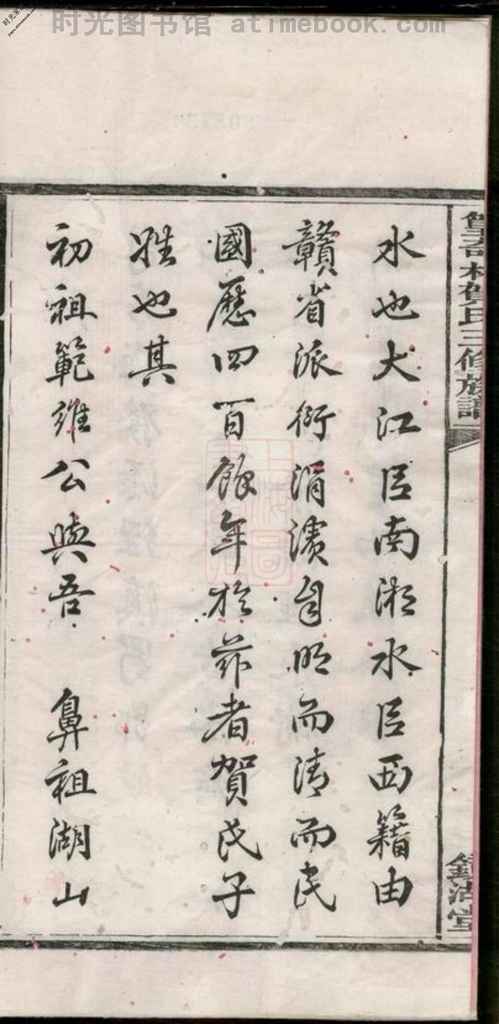 时光图书馆 atimebook.com
水也大江以南湘水以西籍由
贛省派衍涓濆自明而清而民
國歷四百餘年於茲者賀氏子
姓也其
初祖範維公與吾 鼻祖湖山
賀氏三修族譜